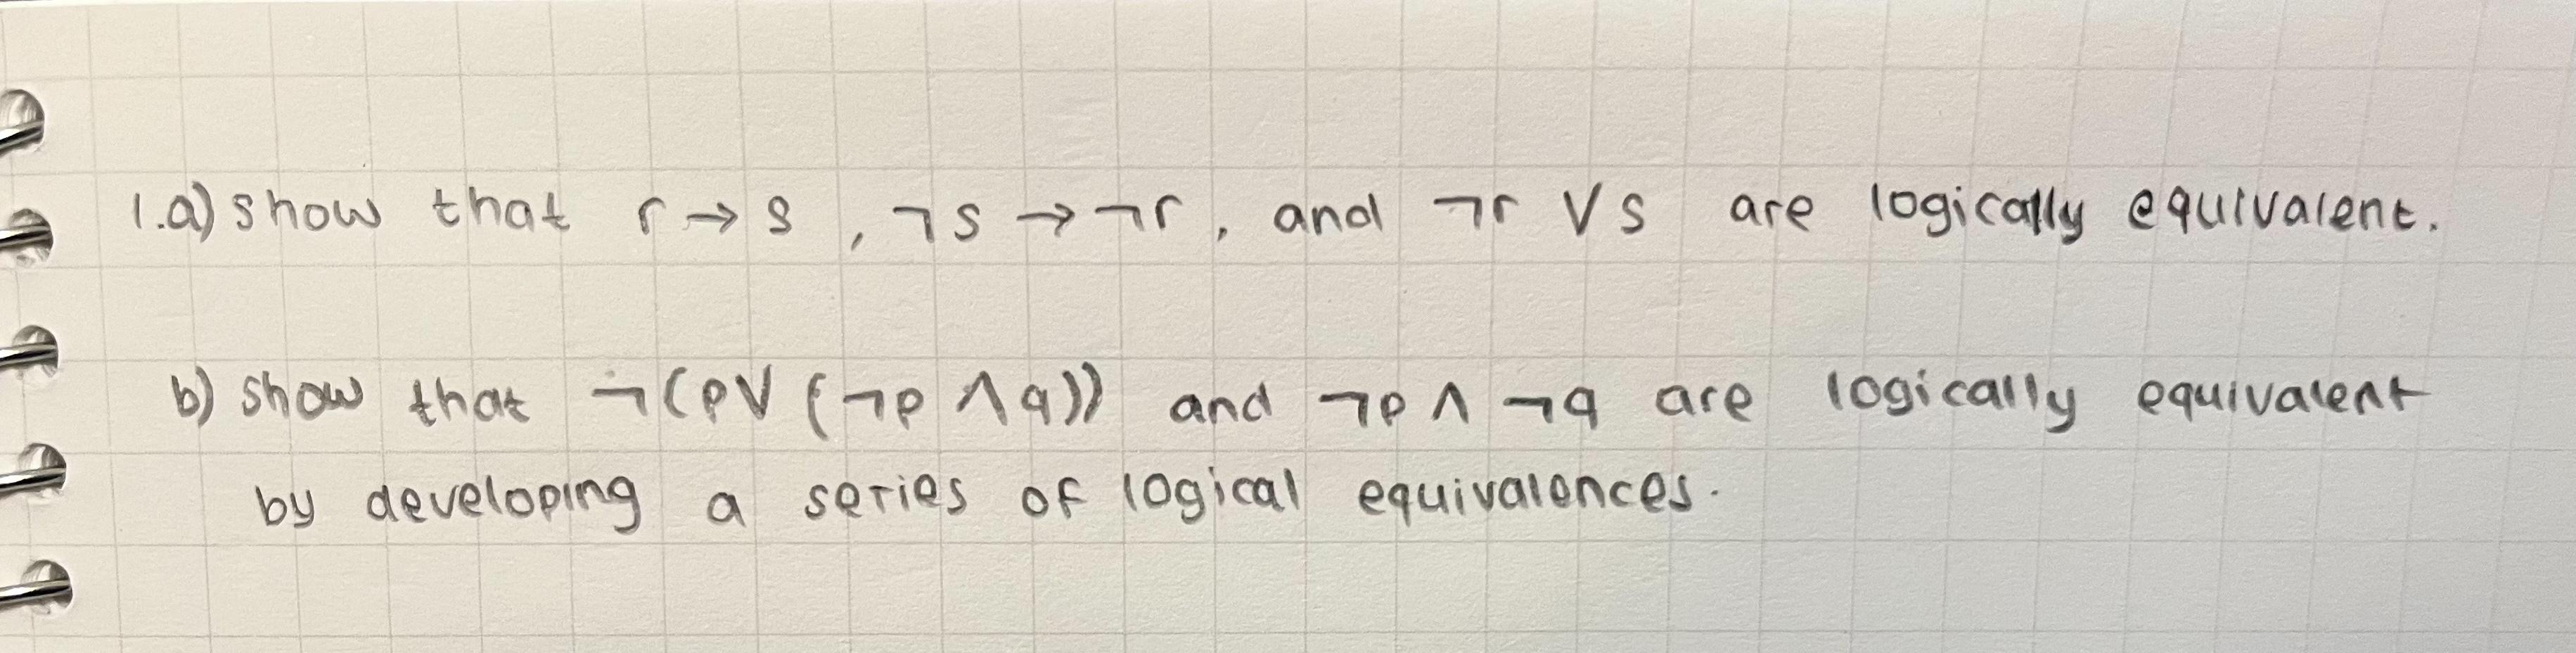 1.a) show that r → s , ¬s → ¬r , and ¬r ∨ s are logically equivalent.
b) show that ¬(p ∨ (¬p ∧ q)) and ¬p ∧ ¬q are logically equivalent
by developing a series of logical equivalences.